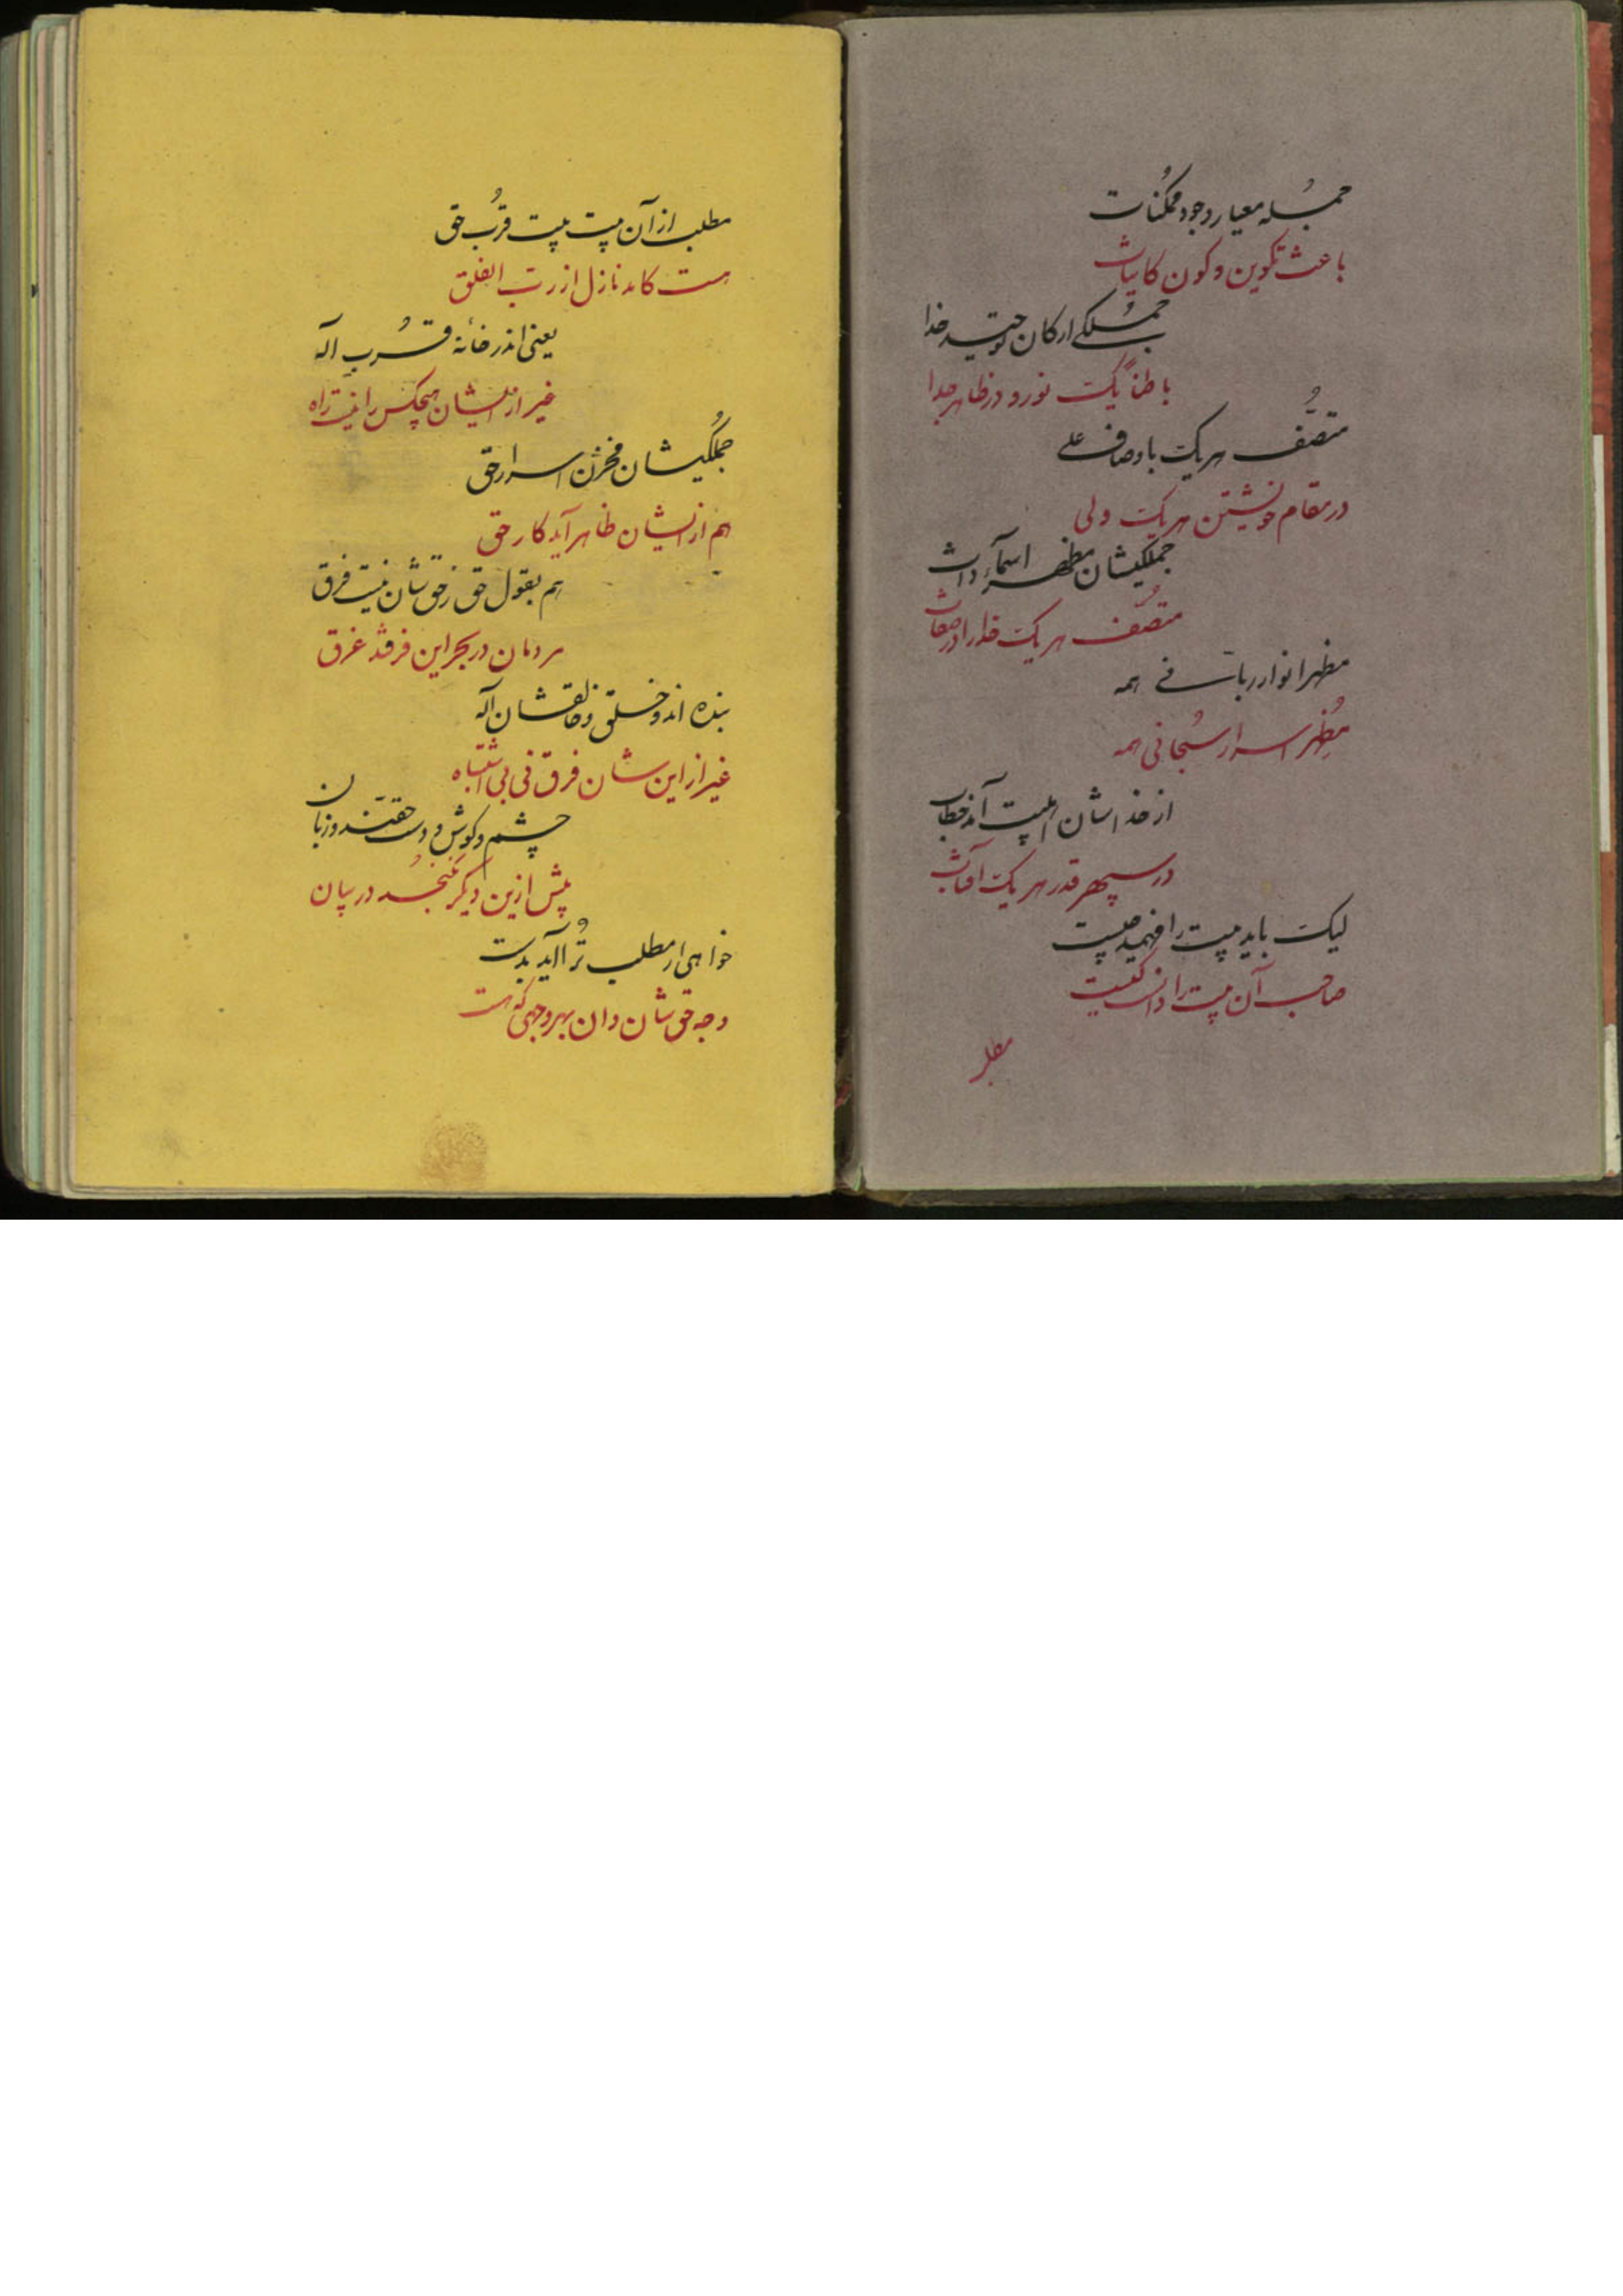 جمله معیار وجود ممکنات
باعث تکوین و کون کاینات
جملگی ارکان توحید خدا
باطناً یک نور و در ظاهر جدا
متصّف هر یک باوصاف علی
در مقام خویشتن هر یک ولی
جملگیشان مظهر اسمآء ذات
متصّف هر یک خدا را در صفات
مظهر انوار ربّانی همه
مُظهر اسرار سُبحانی همه
از خداشان اهلبیت آمد خطاب
در سپهر قدر هر یک آفتاب
لیک باید بیت را فهمید چیست
صاحب آن بیت را دانست کیست
مطلب
مطلب از آن بیت بیت قُرب حق
هست کامد نازل از ربّ الفلق
یعنی اندر خانهٔ قُرب آله
غیر از ایشان هیچکس را نیست راه
جُملگیشان مخزن اسرار حق
هم از ایشان ظاهر آید کار حق
هم بقول حق ز حق شان نیست فرق
مردمان در بحر این فرقند غرق
بنده اند و خلق و خالقشان آله
غیر از این شان فرق نی بی اشتباه
چشم و گوش و دست حقّند و زبان
بیش ازین دیگر نگنجد در بیان
خواهی ار مطلب تُرا آید بدست
وجه حق شان دان بهر وجهی که هست